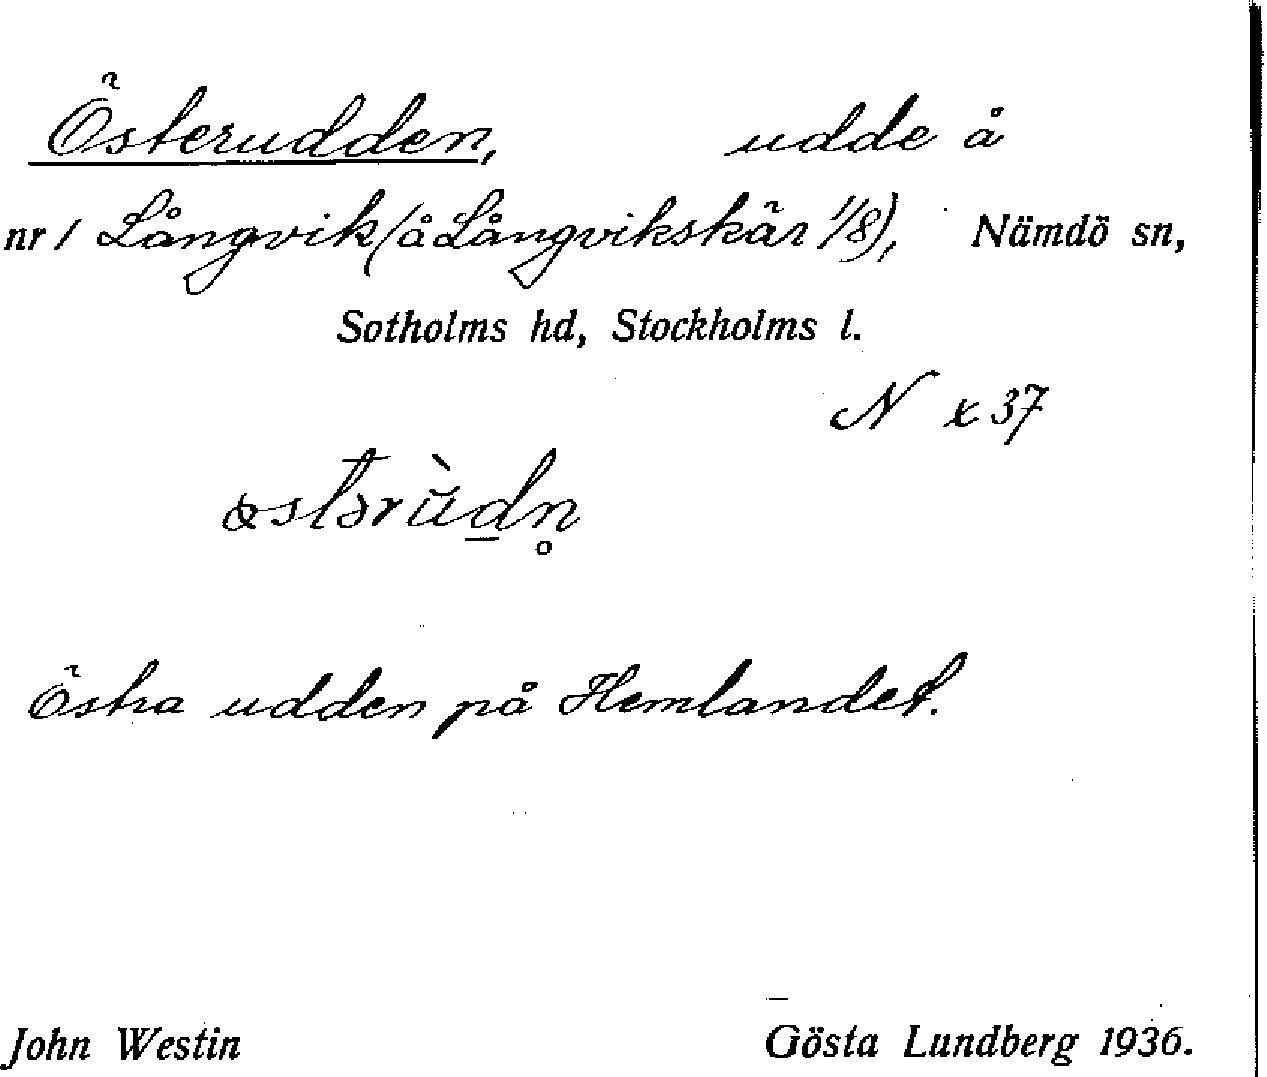 Österudden, udde å
nr 1 Långvik (å Långvikskär 1/8), Nämdö sn,
Sotholms hd, Stockholms l.
N x 37
Östra udden på Hemlandet.
John Westin Gösta Lundberg 1936.